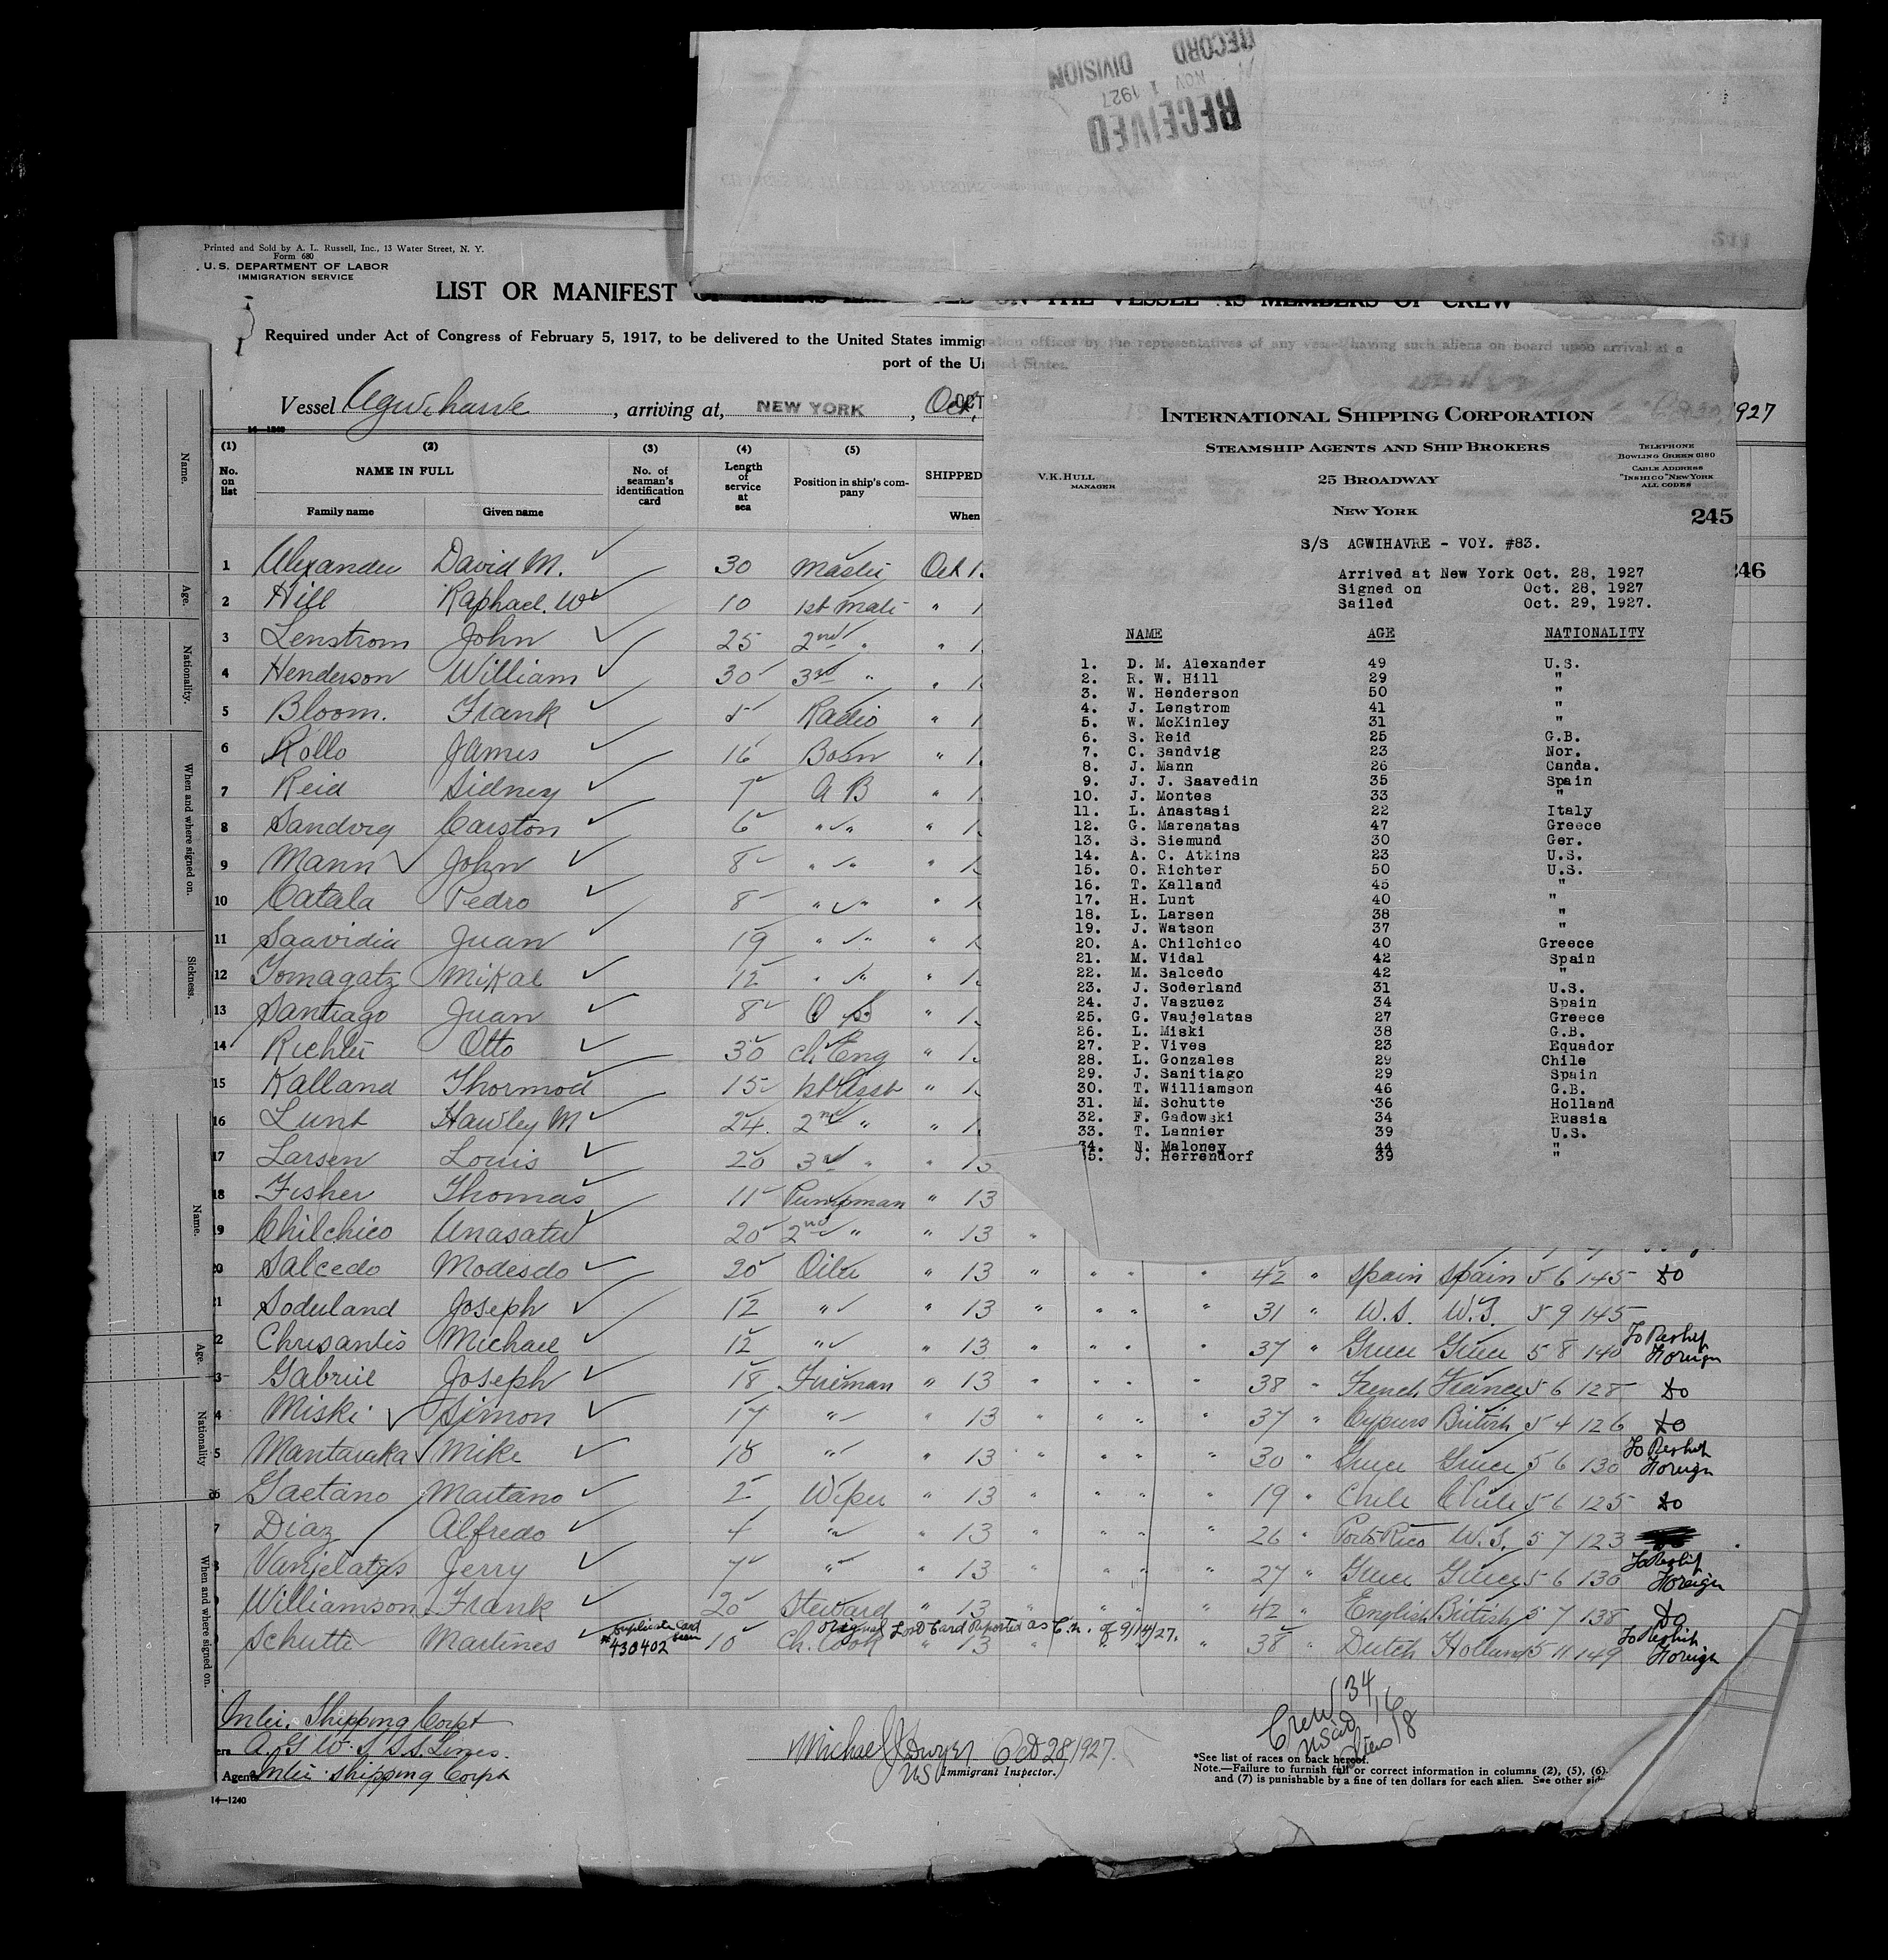 RECORD
DIVISION
NOV 1 1927
RECEIVED
Printed and Sold by A. L. Russell, Inc., 13 Water Street, N. Y.
Form 680
U. S. DEPARTMENT OF LABOR
IMMIGRATION SERVICE
LIST OR MANIFEST OF ALIENS EMPLOYED ON THE VESSEL AS MEMBERS OF CREW
Required under Act of Congress of February 5, 1917, to be delivered to the United States immigration officer by the representatives of any vessel having such aliens on board upon arrival at a
port of the United States.
Vessel Agwihavre, arriving at, NEW YORK, Oct, 1927
14—1240
(1) (2) (3) (4) (5)
No. on list
NAME IN FULL
Family name Given name
No. of seaman's identification card
Length of service at sea
Position in ship's company
SHIPPED
When
1 Alexander David M. 30 Master Oct 1
2 Hill Raphael. W 10 1st Mate " 1
3 Lenstrom John 25 2nd " " 1
4 Henderson William 30 3rd " " 1
5 Bloom. Frank 5 Radio " 1
6 Rollo James 16 Bosn " 1
7 Reid Sidney 7 A B " 1
8 Sandvig Carston 6 " " " 1
9 Mann John 8 " " " 1
10 Catala Pedro 8 " " " 1
11 Saavidia Juan 19 " " " 1
12 Tomagatz Mikal 12 " " " 1
13 Santiago Juan 8 O S. " 1
14 Richter Otto 30 Ch. Eng " 1
15 Kalland Thormod 15 1st Asst " 1
16 Lunt Hawley M 24. 2nd " " 1
17 Larsen Louis 20 3rd " " 13
18 Fisher Thomas 11 Pumpman " 13
19 Chilchico Anasatu 20 2nd " " 13 "
20 Salcedo Modesdo 20 Oiler " 13 " " " " 42 " Spain Spain 5 6 145 do
21 Soderland Joseph 12 " " 13 " " " " 31 " U.S. U.S. 5 9 145
22 Chrisantis Michael 12 " " 13 " " " " 37 " Greece Greece 5 8 140 To Reship Foreign
23 Gabriel Joseph 18 Fireman " 13 " " " " 38 " French France 5 6 128 do
24 Miski Simon 17 " " 13 " " " " 37 " Cyprus British 5 4 126 do
25 Mantaraka Mike 18 " " 13 " " " " 30 " Greece Greece 5 6 130 To Reship Foreign
26 Gaetano Maitano 2 Wiper " 13 " " " " 19 " Chile Chile 5 6 125 do
27 Diaz Alfredo 4 " " 13 " " " " 26 " Porto Rico U.S. 5 7 123
28 Vanjelatos Jerry 7 " " 13 " " " " 27 " Greece Greece 5 6 130 To Reship Foreign
Williamson Frank 20 Steward " 13 " " " " 42 " English British 5 7 138 Do
duplicate card seen
original Lost Card Reported as C.M. of 9/14/27.
Schutte Martines #430402 10 Ch. Cook " 13 " 38 " Dutch Holland 5 11 149 To Reship Foreign
Inter. Shipping Corpt
ers A. G. W. I. S.S. Lines.
Agents Inter Shipping Corpt
14—1240
Michael J Dwyer Oct 28, 1927.
US Immigrant Inspector.
Crew 34
USCit 16
Aliens 18
*See list of races on back hereof.
Note.—Failure to furnish full or correct information in columns (2), (5), (6)
and (7) is punishable by a fine of ten dollars for each alien. See other sid
INTERNATIONAL SHIPPING CORPORATION
STEAMSHIP AGENTS AND SHIP BROKERS
25 BROADWAY
NEW YORK
V. K. HULL
MANAGER
TELEPHONE
BOWLING GREEN 6180
CABLE ADDRESS
"INSHICO" NEW YORK
ALL CODES
245
246
S/S AGWIHAVRE - VOY. #83.
Arrived at New York Oct. 28, 1927
Signed on Oct. 28, 1927
Sailed Oct. 29, 1927.
NAME AGE NATIONALITY
1. D. M. Alexander 49 U.S.
2. R. W. Hill 29 "
3. W. Henderson 50 "
4. J. Lenstrom 41 "
5. W. McKinley 31 "
6. S. Reid 25 G.B.
7. C. Sandvig 23 Nor.
8. J. Mann 26 Canda.
9. J. J. Saavedin 35 Spain
10. J. Montes 33 "
11. L. Anastasi 22 Italy
12. G. Marenatas 47 Greece
13. S. Siemund 30 Ger.
14. A. C. Atkins 23 U.S.
15. O. Richter 50 U.S.
16. T. Kalland 45 "
17. H. Lunt 40 "
18. L. Larsen 38 "
19. J. Watson 37 "
20. A. Chilchico 40 Greece
21. M. Vidal 42 Spain
22. M. Salcedo 42 "
23. J. Soderland 31 U.S.
24. J. Vaszuez 34 Spain
25. G. Vaujelatas 27 Greece
26. L. Miski 38 G.B.
27. P. Vives 23 Equador
28. L. Gonzales 29 Chile
29. J. Sanitiago 29 Spain
30. T. Williamson 46 G.B.
31. M. Schutte 36 Holland
32. F. Gadowski 34 Russia
33. T. Lannier 39 U.S.
34. N. Maloney 44 "
35. J. Herrendorf 39 "
Name.
Age.
Nationality.
When and where signed on.
Sickness.
Name.
Age.
Nationality
When and where signed on.